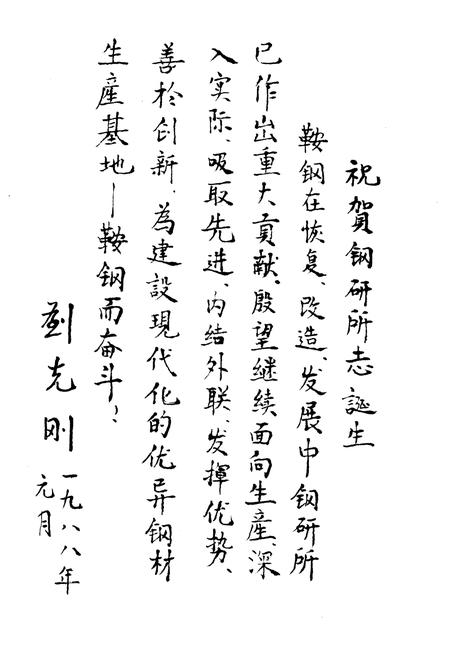 祝賀鋼研所志誕生
鞍鋼在恢复、改造、发展中鋼研所
已作出重大貢献、殷望継续面向生產、深
入实际、吸取先进、内结外联、发揮优势、
善於创新、為建設現代化的优异鋼材
生產基地—鞍鋼而奋斗！
刘克刚
一九八八年
元月